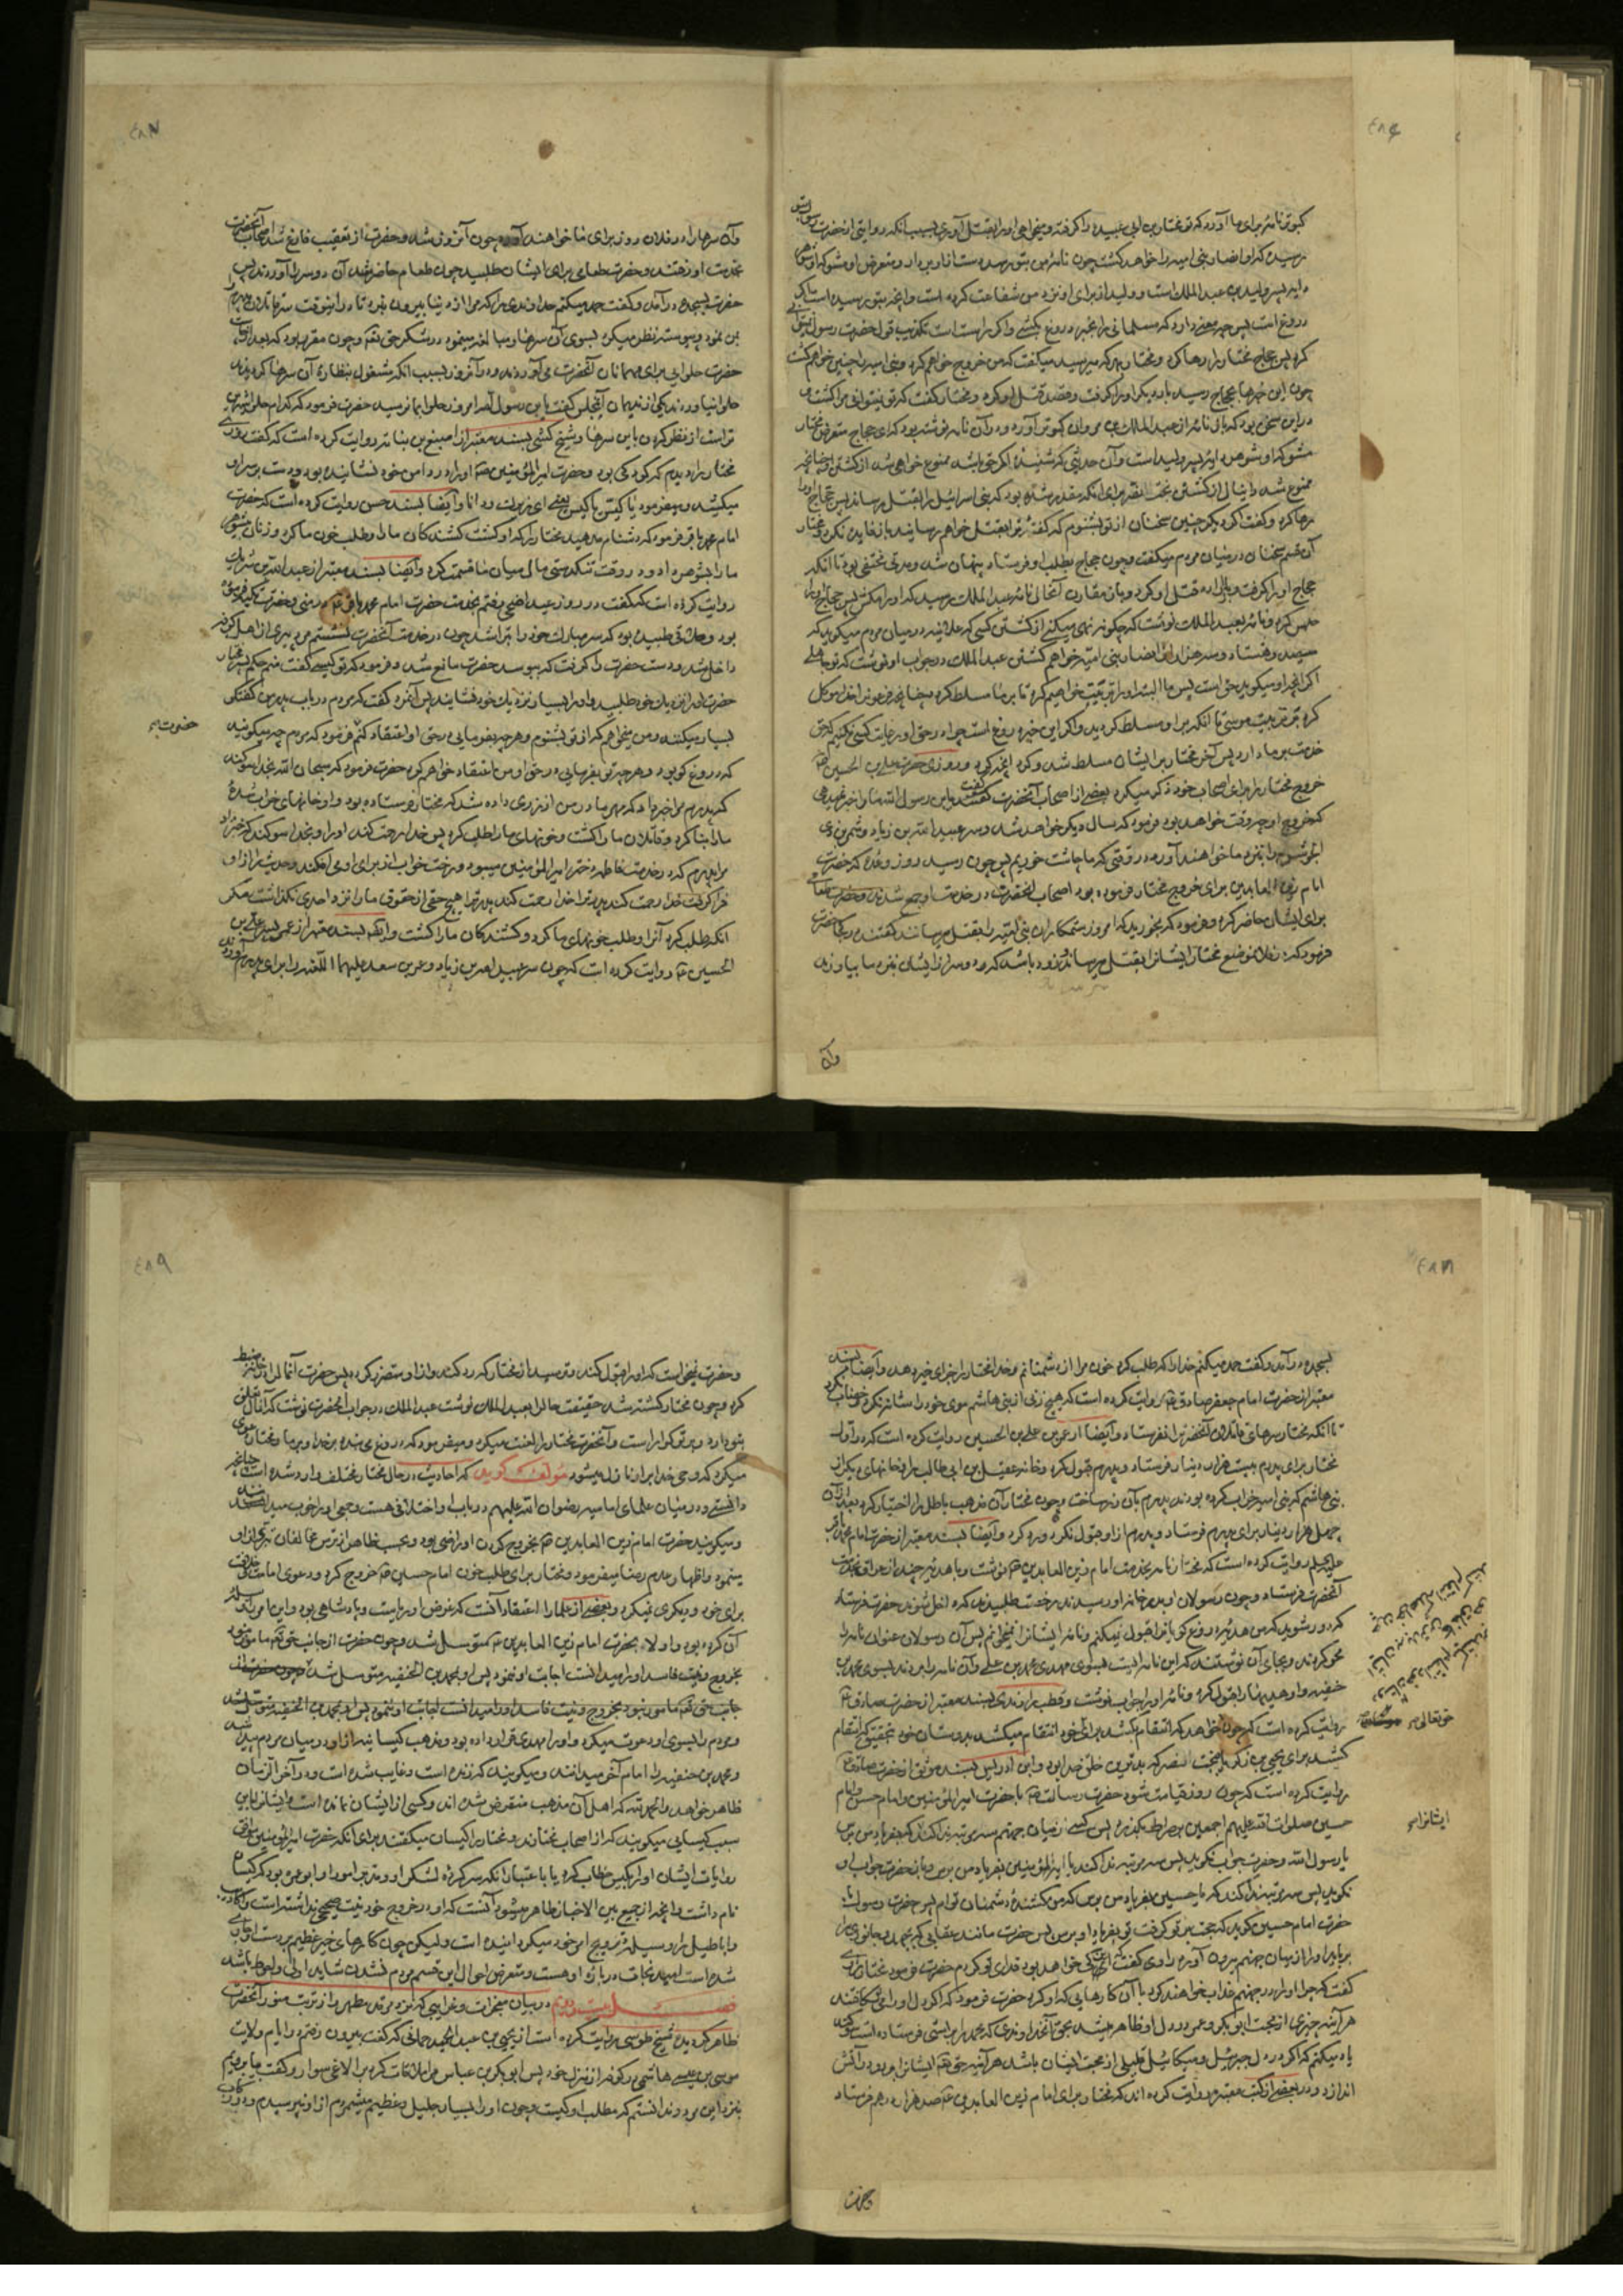 ٤٨٦
کبوتر نامهٔ برای ما آورد که تو مختار بن ابی عبیده را گرفته و میخواهی او را بقتل آوری بسبب آنکه روایتی از حضرت رسول بتو
رسیده که او انصار بنی امیه را خواهد کشت چون نامهٔ من بتو رسد دست از او بردار و متعرض او مشو که او شوهر
دایه پسر ولید بن عبد الملک است و ولید از برای او نزد من شفاعت کرده است و آنچه بتو رسیده است اگر
دروغ است پس چه معنی دارد که مسلمانی را بخبر دروغ بکشی و اگر راست است تکذیب قول حضرت رسول نمیتوانی
کرد پس حجاج مختار را رها کرد و مختار بهر که میرسید میگفت که من خروج خواهم کرد و بنی امیه را چنین خواهم کشت
چون این خبرها بحجاج رسید بار دیگر او را گرفت و قصد قتل او کرد و مختار گفت که تو نمیتوانی مرا کشت و
در این سخن بود که باز نامهٔ از عبد الملک بن مروان کبوتر آورد و در آن نامه نوشته بود که ای حجاج متعرض مختار
مشو که او شوهر دایه پسر ولید است و آن حدیثی که شنیدهٔ اگر حق باشد ممنوع خواهی شد از کشتن او چنانچه
ممنوع شد دانیال از کشتن بخت النصر برای آنکه مقدر شده بود که بنی اسرائیل را بقتل رساند پس حجاج او را
رها کرد و گفت اگر دیگر چنین سخنان از تو بشنوم که گفتهٔ ترا بقتل خواهم رسانید باز فایده نکرد و مختار
آن قسم سخنان در میان مردم میگفت و چون حجاج بطلب او فرستاد پنهان شد و مدتی مختفی بود تا آنکه
حجاج او را گرفت و باز اراده قتل او کرد و باز مقارن آنحال نامهٔ عبد الملک رسید که او را مکش پس حجاج او را
حبس کرد و نامهٔ بعبد الملک نوشت که چگونه نهی میکنی از کشتن کسی که علانیه در میان مردم میگوید که
سیصد و هشتاد و سه هزار از انصار بنی امیه خواهم کشت عبد الملک در جواب او نوشت که تو جاهلی
اگر آنچه او میگوید حق است پس ما البته او را تربیت خواهیم کرد تا بر ما مسلط گردد چنانچه فرعون را خدا موکل
کرد بر تربیت موسی تا آنکه بر او مسلط گردید و اگر این خبر دروغ است چرا در حق او رعایت کسی نکنیم که حق
خدمت بر ما دارد پس آخر مختار بر ایشان مسلط شد و کرد آنچه کرد و روزی حضرت علی بن الحسین ع
خروج مختار را برای اصحاب خود ذکر میکرد بعضی از اصحاب آنحضرت گفتند یابن رسول الله ما را خبر نمیدهی
که خروج او چه وقت خواهد بود فرمود که سال دیگر خواهد شد و سر عبید الله بن زیاد و شمر بن ذی
الجوشن را بنزد ما خواهند آورد در وقتی که ما چاشت خوریم پس چون رسید روز وعده که حضرت
امام زین العابدین برای خروج مختار فرموده بود اصحاب آنحضرت در خدمت او جمع شدند و حضرت طعامی
برای ایشان حاضر کرد و فرمود که بخورید که امروز ستمکاران بنی امیه را بقتل میرسانند گفتند در کجا حضرت
فرمود که در فلان موضع مختار ایشانرا بقتل میرساند و زود باشد که دو سر از ایشان بنزد ما بیاورند
وآن
٤٨٧
وآن سرها را در فلان روز برای ما خواهند آورد چون آن روز شد و حضرت از تعقیب فارغ شد اصحاب آنحضرت
بخدمت او رفتند و حضرت طعامی برای ایشان طلبید چون طعام حاضر شد آن دو سر را آوردند پس
حضرت بسجده درآمد و گفت حمد میکنم خداوندی را که مرا از دنیا بیرون نبرد تا در اینوقت سر قاتلان پدرم را
بمن نمود و پیوسته نظر میکرد بسوی آن سرها و مبالغه مینمود در شکر حق تعالی و چون مقرر بود که بعد از طعام
حضرت حلوایی برای مهمانان آنحضرت می آوردند و در آنروز بسبب آنکه مشغول بنظاره آن سرها گردیدند
حلوا نیاوردند یکی از ندیمان آنمجلس گفت یابن رسول الله امروز حلوا بما نرسید حضرت فرمود که کدام حلوا شیرین
تر است از نظر کردن باین سرها و شیخ کشی بسند معتبر از اصبغ بن نباته روایت کرده است که گفت روزی
مختار را دیدم که کودکی بود و حضرت امیر المؤمنین ع او را در دامن خود نشانیده بود و دست بر سر او
میکشید و میفرمود یا کیس یا کیس یعنی ای زیرک و دانا و ایضا بسند حسن روایت کرده است که حضرت
امام محمد باقر فرمود که دشنام مدهید مختار را که او کشت کشندگان ما را و طلب خون ما کرد و زنان بی شوهر
ما را بشوهر داد و در وقت تنگدستی مال میان ما قسمت کرد و ایضا بسند معتبر از عبد الله بن شریک
روایت کرده است که گفت در روز عید اضحی رفتم بخدمت حضرت امام محمد باقر ع در منی و حضرت تکیه فرموده
بود و حلاقی طلبیده بود که سر مبارک خود را بتراشد چون در خدمت آنحضرت نشستم مرد پیری از اهل کوفه
داخل شد و دست حضرت را گرفت که ببوسد حضرت مانع شد و فرمود که تو کیستی گفت منم حکم پسر مختار
حضرت او را نزدیک خود طلبید و او را بسیار نزدیک خود نشانید پس آنمرد گفت که مردم در باب پدر من گفتگوی
بسیار میکنند و من میخواهم که از تو بشنوم و هر چه بفرمایی در حق او اعتقاد کنم فرمود که مردم چه میگویند گفت میگویند
حضرت
که دروغ گو بود و هر چه تو بفرمایی در حق او من اعتقاد خواهم کرد حضرت فرمود که سبحان الله بخدا سوگند
که پدرم مرا خبر داد که مهر مادر من از زری داده شد که مختار فرستاده بود و او خانهای خراب شدهٔ
ما را بنا کرد و قاتلان ما را کشت و خونهای ما را طلب کرد پس خدا رحمت کند او را و بخدا سوگند که خبر داد
مرا پدرم که در خدمت فاطمه دختر امیر المؤمنین میبود و رخت خواب از برای او می افکند و حدیث را از او
فرا گرفت خدا رحمت کند پدر ترا خدا رحمت کند پدر ترا هیچ حقی از حقوق ما را نزد احدی نگذاشت مگر
آنکه طلب کرد آنرا و طلب خونهای ما کرد و کشندگان ما را کشت و ایضا بسند معتبر از عمر پسر علی بن
الحسین ع روایت کرده است که چون سر عبید الله بن زیاد و عمر بن سعد علیهما اللعنه را برای پدرم آوردند
٤٨٨
بسجده درآمد و گفت حمد میکنم خدا را که طلب کرد خون مرا از دشمنانم و خدا مختار را جزای خیر دهد و ایضا بسند
معتبر از حضرت امام جعفر صادق ع روایت کرده است که هیچ زنی از بنی هاشم موی خود را شانه نکرد و خضاب نکرد
تا آنکه مختار سرهای قاتلان آنحضرت را فرستاد و ایضا از عمر بن علی بن الحسین روایت کرده است که در اول
مختار برای پدرم بیست هزار دینار فرستاد و پدرم قبول کرد و خانه عقیل بن ابی طالب را و خانهای دیگر از
بنی هاشم که بنی امیه خراب کرده بودند پدرم بآن زر ساخت و چون مختار آن مذهب باطل را اختیار کرد بعد از آن
چهل هزار دینار برای پدرم فرستاد و پدرم از او قبول نکرد و رد کرد و ایضا بسند معتبر از حضرت امام محمد باقر
علیه السلام روایت کرده است که مختار نامه بخدمت امام زین العابدین ع نوشت و با هدیهٔ چند از عراق بخدمت
آنحضرت فرستاد و چون رسولان او بدر خانه او رسیدند و رخصت طلبیدند که داخل شوند حضرت فرستاد
که دور شوید که من هدیه دروغ گویانرا قبول نمیکنم و نامهٔ ایشانرا نمیخوانم پس آن رسولان عنوان نامه را
محو کردند و بجای آن نوشتند که این نامه ایست بسوی مهدی محمد بن علی و آن نامه را بردند بسوی محمد بن
حنفیه و او هدیها را قبول کرد و نامهٔ او را جواب نوشت و قطب راوندی بسند معتبر از حضرت صادق ع
روایت کرده است که چون خواهد که انتقام کشد برای خود انتقام میکشد بدوستان خود بتحقیق که انتقام
حق تعالی
کشید برای یحیی بن زکریا ببخت النصر که بدترین خلق خدا بود و ابن ادریس بسند موثق از حضرت صادق ع
روایت کرده است که چون روز قیامت شود حضرت رسالت ص با حضرت امیر المؤمنین و امام حسن و امام
حسین صلوات الله علیهم اجمعین بر صراط بگذرند پس کسی از میان جهنم سه مرتبه ندا کند که بفریاد من برس
ایشانرا
یا رسول الله و حضرت جواب نگوید پس سه مرتبه ندا کند یا امیر المؤمنین بفریاد من برس و باز حضرت جواب او
نگوید پس سه مرتبه ندا کند که یا حسین بفریاد من برس که من کشندهٔ دشمنان توام پس حضرت رسول با
حضرت امام حسین گوید که حجت بر تو گرفت تو بفریاد او برس پس حضرت مانند عقابی که بجهد و جانوری را
برباید او را از میان جهنم بیرون آورد راوی گفت این کی خواهد بود فدای تو گردم حضرت فرمود مختار راوی
گفت که چرا او را در جهنم عذاب خواهند کرد با آن کارهایی که او کرد حضرت فرمود که اگر دل او را میشکافتند
هر آینه چیزی از محبت ابو بکر و عمر در دل او ظاهر میشد بحق آنخداوندی که محمد را براستی فرستاده است سوگند
یاد میکنم که اگر در دل جبرئیل و میکائیل قلیلی از محبت ایشان باشد هر آینه حق تعالی ایشانرا برو در آتش
اندازد و در بعضی از کتب معتبره روایت کرده اند که مختار برای امام زین العابدین ع صد هزار درهم فرستاد
وحضرت
٤٨٩
وحضرت نمیخواست که او را قبول کند و ترسید از مختار که رد کند و از او متضرر گردد پس حضرت آنمال را در خانه ضبط
کرد و چون مختار کشته شد حقیقت حال را بعبد الملک نوشت عبد الملک در جواب آنحضرت نوشت که آنمال تعلق
بتو دارد و بر تو گواراست و آنحضرت مختار را لعنت میکرد و میفرمود که دروغ می بندد بر خدا و بر ما و مختار دعوی
میکرد که وحی خدا بر او نازل میشود مؤلف گوید که احادیث در حال مختار مختلف وارد شده است چنانچه
دانستی و در میان علمای امامیه رضوان الله علیهم در باب او اختلافی هست و جمعی او را خوب میدانند
و میگویند حضرت امام زین العابدین ع بخروج کردن او راضی بود و بحسب ظاهر از ترس مخالفان تبری از او
مینمود و اظهار عدم رضا میفرمود و مختار برای طلب خون امام حسین ع خروج کرد و دعوی امامت و خلافت
برای خود و دیگری نمیکرد و بعضی از علما را اعتقاد آنست که غرض او ریاست و پادشاهی بود و این امر را وسیله
آن کرده بود و اولا بحضرت امام زین العابدین ع متوسل شد و چون حضرت از جانب حق تعالی مأمور نبود
بخروج و نیت فاسد او را میدانست اجابت او ننمود پس او بمحمد بن الحنفیه متوسل شد
و مردم را بسوی او دعوت میکرد و او را مهدی قرار داده بود و مذهب کیسانیه از او در میان مردم پیدا شد
و محمد بن حنفیه را امام آخر میدانند و میگویند که زنده است و غایب شده است و در آخر الزمان
ظاهر خواهد شد والحمد لله که اهل آن مذهب منقرض شده اند و کسی از ایشان نمانده است و ایشانرا باین
سبب کیسانی میگویند که از اصحاب مختارند و مختار را کیسان میگفتند برای آنکه حضرت امیر المؤمنین موافق
روایات ایشان او را بکیس خطاب کرد یا باعتبار آنکه سر کرده لشکر او و مدبر امور او ابو عمره بود که کیسان
نام داشت و آنچه از جمع بین الاخبار ظاهر میشود آنست که او در خروج خود نیت صحیحی نداشته است و اکاذیب
و اباطیل را وسیله ترویج امر خود میکردانیده است ولیکن چون کارهای خیر عظیم بر دست او جاری
شده است امید نجات درباره او هست و متعرض احوال این قسم مردم نشدن شاید اولی و احوط باشد
فصل بیست و دویم در بیان معجزات و غرایبی که از نزد مرقد مطهر و از تربت منور آنحضرت
ظاهر گردید شیخ طوسی روایت کرده است از یحیی بن عبد الحمید حمانی که گفت بیرون رفتم در ایام ولایت
موسی بن عیسی هاشمی در کوفه از منزل خود پس ابو بکر بن عیاش مرا ملاقات کرد بر الاغی سوار و گفت بیا برویم
بنزد این مرد و ندانستم که مطلب او کیست و چون او را بسیار جلیل و عظیم میشمردم از او نپرسیدم و در رکاب